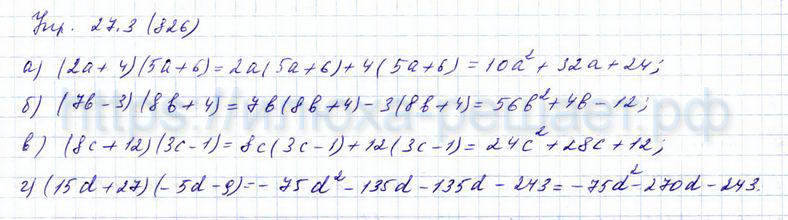 Упр. 27.3 (826)
а) (2a+4)(5a+6)=2a(5a+6)+4(5a+6)=10a²+32a+24;
б) (7b-3)(8b+4)=7b(8b+4)-3(8b+4)=56b²+4b-12;
в) (8c+12)(3c-1)=8c(3c-1)+12(3c-1)=24c²+28c+12;
г) (15d+27)(-5d-9)=-75d²-135d-135d-243=-75d²-270d-243.